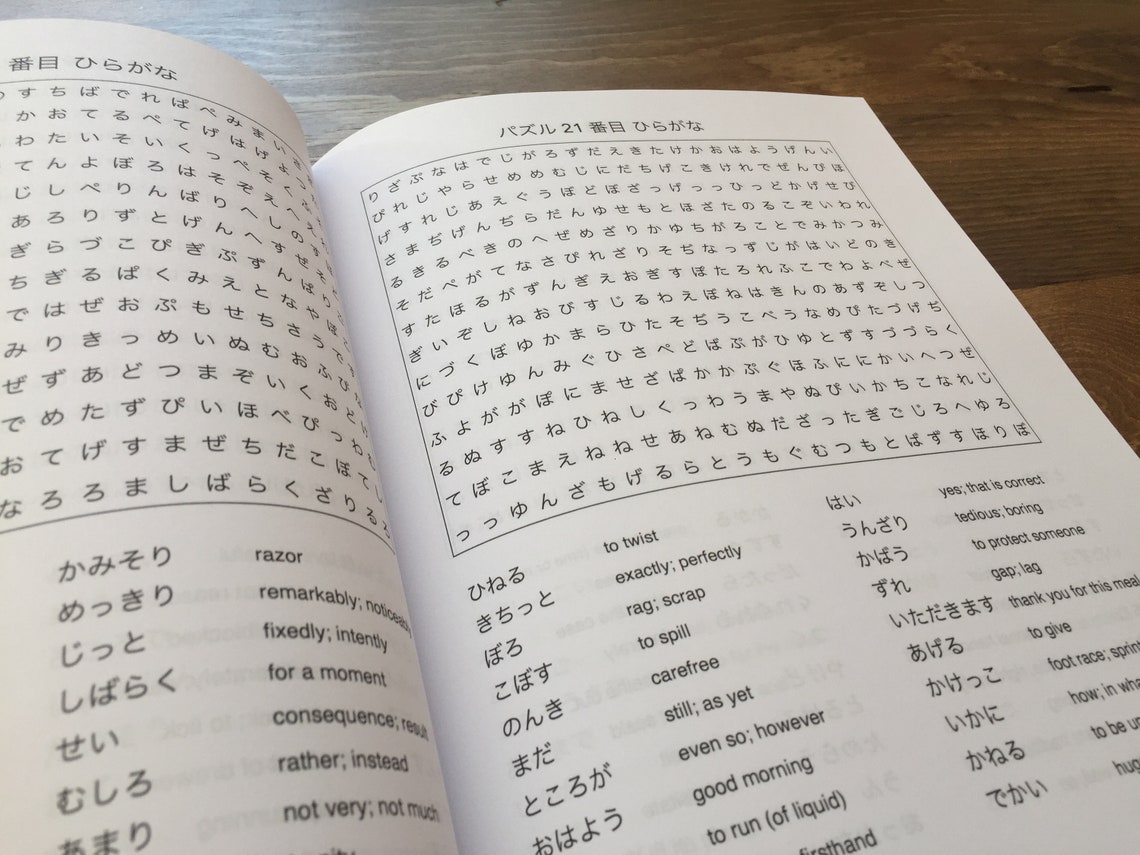 番目 ひらがな
す ち ば で れ ぱ ぺ み ま い
か お て る ぺ て げ は け よ
わ た い そ い く っ ぺ そ く
て ん よ ぼ ろ は そ ぞ え へ
じ し ぺ り ん ば り へ し の
あ ろ り ず と げ ん へ す ぜ そ
ぎ ら づ こ ぴ ぎ ぷ ず ん ば り
ち ぎ る ぱ く み え と な や ほ
で は ぜ お ぷ も せ ち さ う で
み り き っ め い ぬ む お ふ
ぜ ず あ ど つ ま ぞ い く お ど
で め た ず ぴ い ほ べ ぴ つ わ
お て げ す ま ぜ ち だ こ ぼ て し
な ろ ろ ま し ば ら く ざ り る ろ
かみそり razor
めっきり remarkably; noticeably
じっと fixedly; intently
しばらく for a moment
せい consequence; result
むしろ rather; instead
あまり not very; not much
パズル 21 番目 ひらがな
り ざ ぷ な は で じ が ろ ず だ え き た け か お は よ う げ ん い
び れ じ や ら せ め め む じ に だ ち げ こ き け れ で ぜ ん び ほ
げ す れ じ あ え ぐ う ぼ ど ぼ ざ っ げ っ っ ひ っ ど か げ せ び
さ ま ぢ げ ん ぢ ら だ ん ゆ せ も と ほ ざ た の る こ ぞ い わ れ
る き る べ き の へ ぜ め ざ り か ゆ ち が ろ こ と で み か つ み
そ だ ぺ が て な さ び れ ざ り そ ぢ な っ ず じ が は い ど の き
す た ほ る が ず ん ぎ え お ぎ す ぼ た ろ れ ふ こ で わ よ べ ぜ
ぎ い ぞ し ね お び す じ る わ え ぼ ね は き ん の あ ず ぞ し つ
に づ く ぼ ゆ か ま ら ひ た そ ぢ う こ ぺ う な め び た づ げ ち
び ぴ け ゆ ん み ぐ ひ さ べ ど ば ぶ が ひ ゆ と ず す づ づ ら く
ふ よ が が ぽ に ま せ ざ ぱ か か ぷ ぐ ほ ふ に に か い へ つ ぜ
る ぬ す す ね ひ ね し く っ わ う ま や ぬ ぴ い か ち こ な れ じ
て ぼ こ ま え ね ね せ あ ね む ぬ だ ざ っ た ぎ ご じ ろ へ ゆ ろ
っ っ ゆ ん ざ も げ る ら と う も ぐ む つ も と ば ず す ほ り ぼ
ひねる to twist
きちっと exactly; perfectly
ぼろ rag; scrap
こぼす to spill
のんき carefree
まだ still; as yet
ところが even so; however
おはよう good morning
to run (of liquid)
firsthand
はい yes; that is correct
うんざり tedious; boring
かばう to protect someone
ずれ gap; lag
いただきます thank you for this meal
あげる to give
かけっこ foot race; sprint
いかに how; in what
かねる to be
でかい